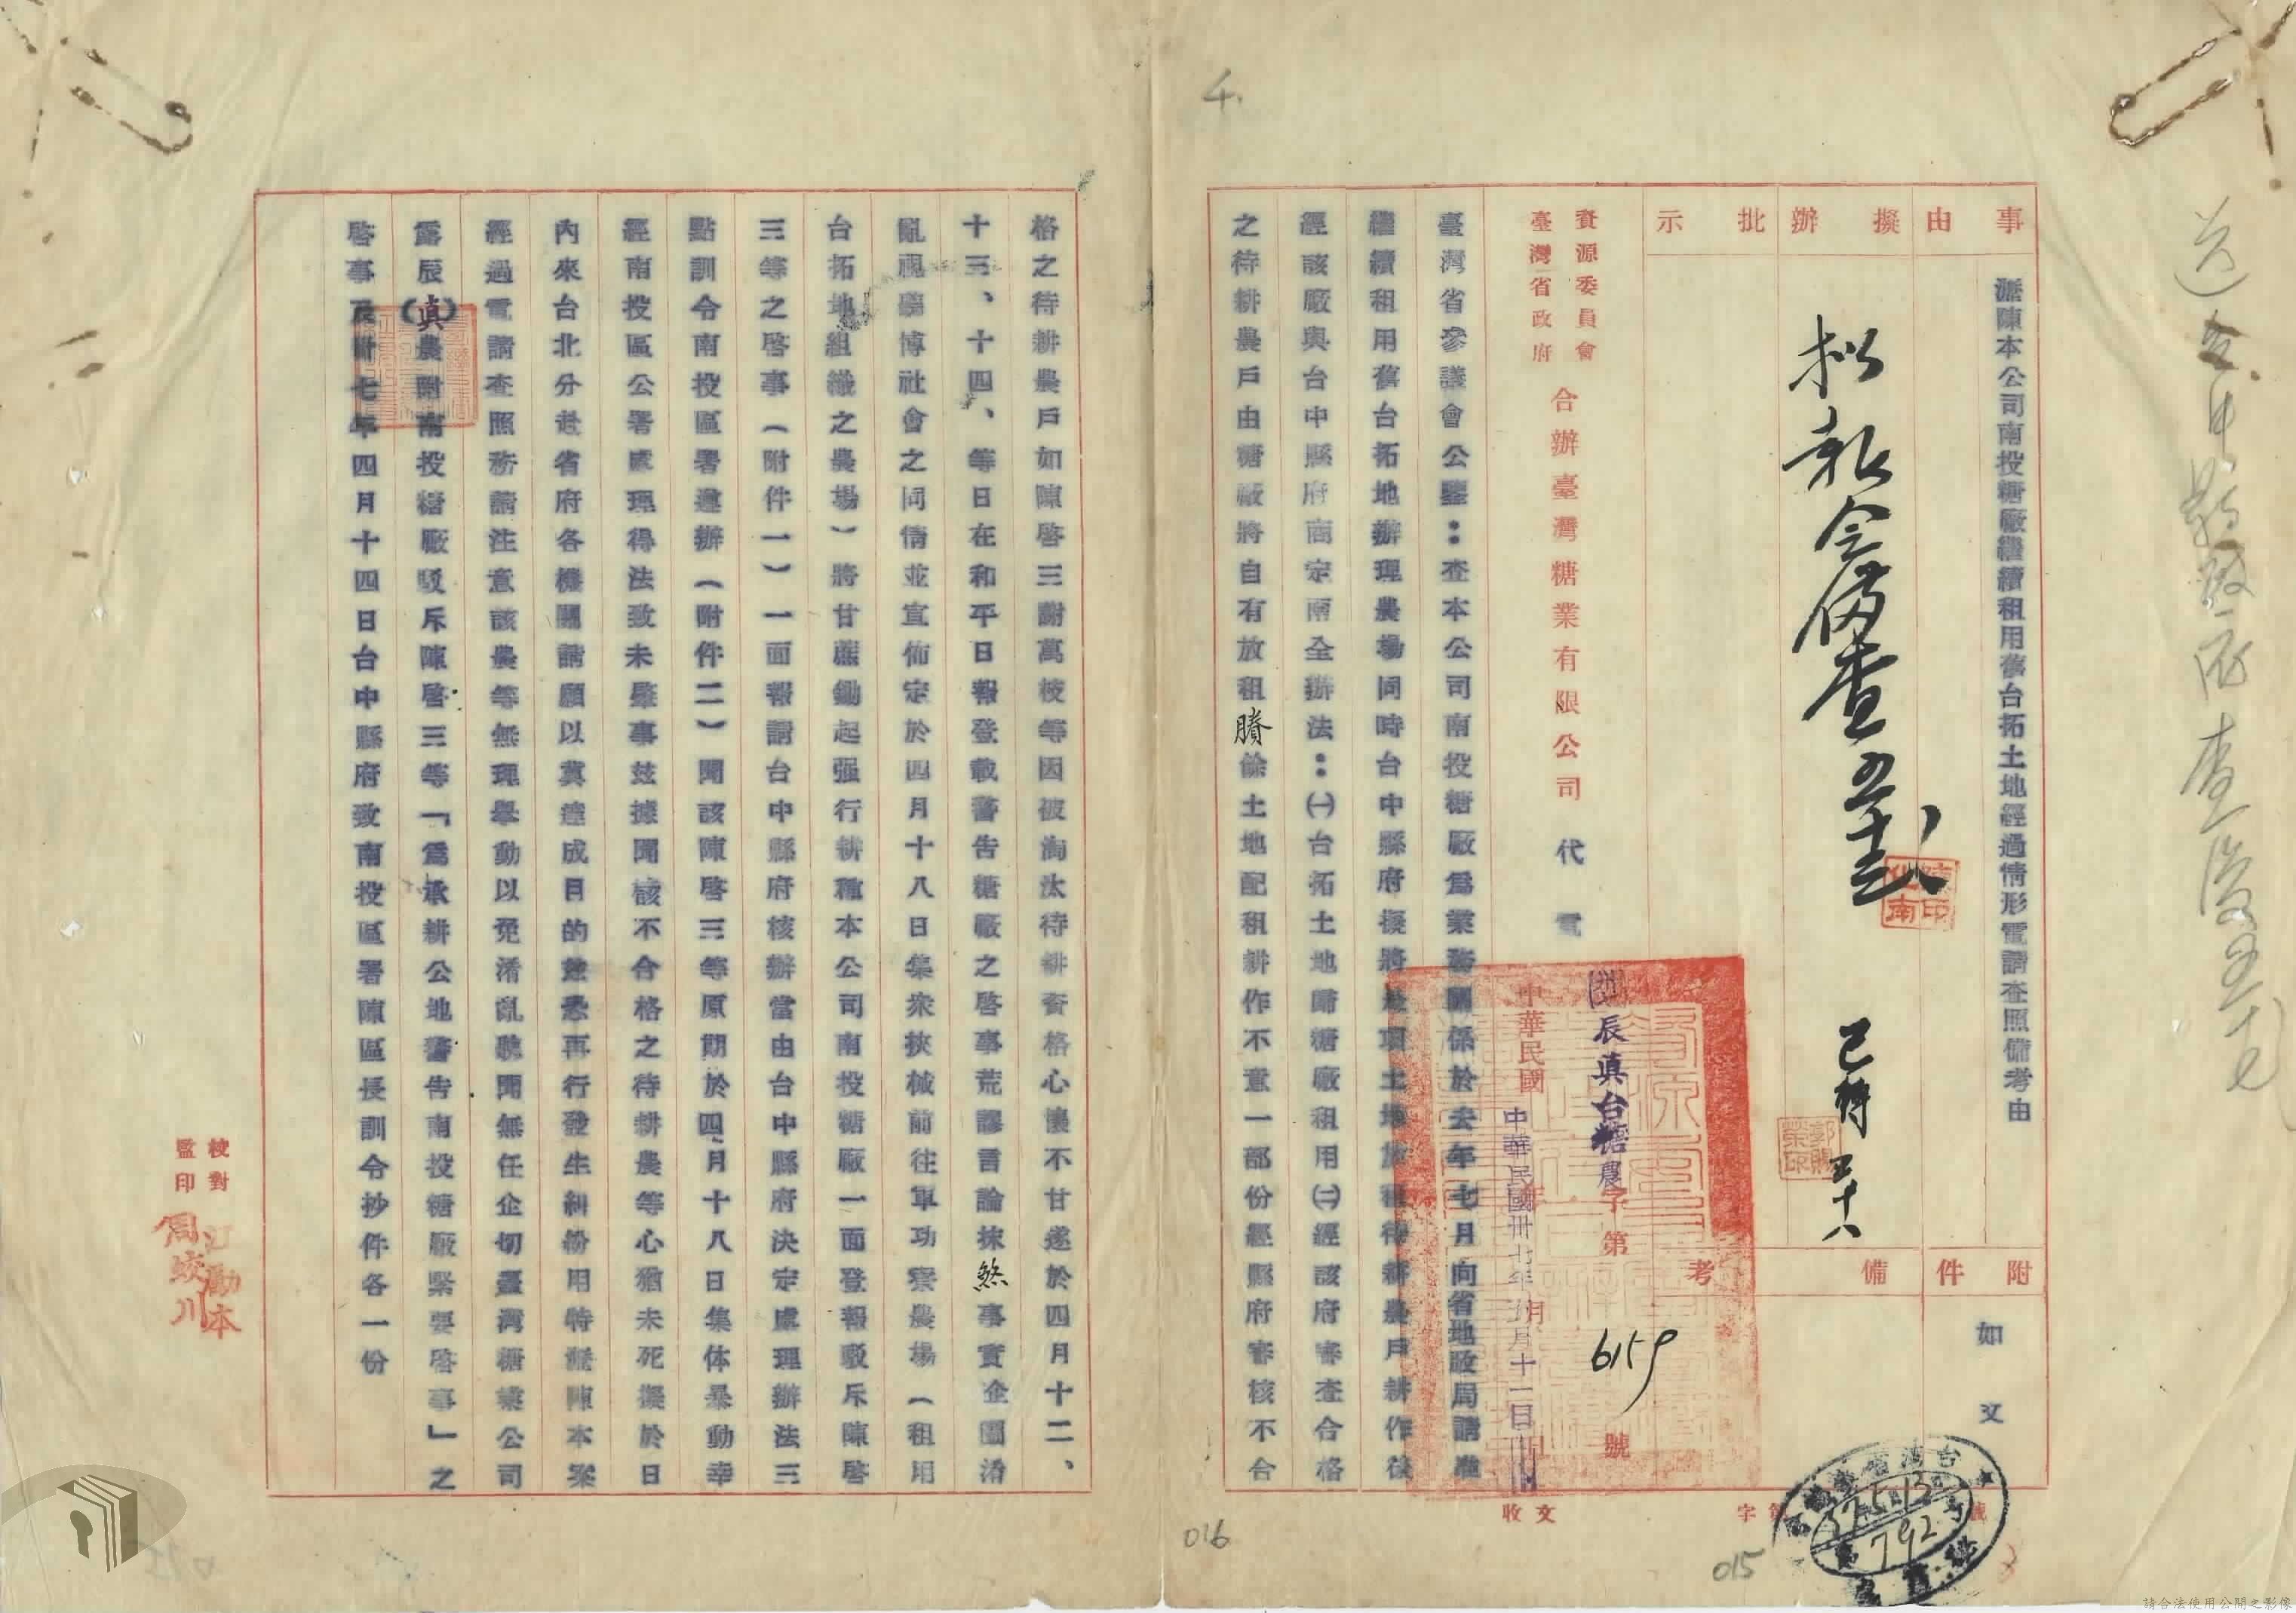 事由
擬辦
批示
派陳本公司南投糖廠繼續租用舊台拓土地經過情形電請查照備考由
附件
備考
如文
資源委員會
臺灣省政府
合辦臺灣糖業有限公司 代電
辰真台糖農字第6159號
中華民國 年 月 日
中華民國卅七年五月十一日
臺灣省參議會公鑒：查本公司南投糖廠為業務關係於去年七月向省地政局請准
繼續租用舊台拓地辦理農場同時台中縣府擬將是項土地放租待耕農戶耕作後
經該廠與台中縣府商定兩全辦法：㈠台拓土地歸糖廠租用㈡經該府審查合格
之待耕農戶由糖廠將自有放租賸餘土地配租耕作不意一部份經縣府審核不合
收文 字第 號
37.5.13
792
015
格之待耕農戶如陳啓三謝萬枝等因被淘汰待耕資格心懷不甘遂於四月十二、
十三、十四、等日在和平日報登載警告糖廠之啓事荒謬言論抹煞事實企圖淆
亂視聽博社會之同情並宣佈定於四月十八日集眾挾械前往軍功寮農場（租用
台拓地組織之農場）將甘蔗鋤起强行耕種本公司南投糖廠一面登報駁斥陳啓
三等之啓事（附件一）一面報請台中縣府核辦當由台中縣府決定處理辦法三
點訓令南投區署遵辦（附件二）聞該陳啓三等原期於四月十八日集体暴動幸
經南投區公署處理得法致未肇事玆據聞該不合格之待耕農等心猶未死擬於日
內來台北分赴省府各機關請願以冀達成目的並恐再行發生糾紛用特派陳本案
經過電請查照務請注意該農等無理舉動以免淆亂聽聞無任企切臺灣糖業公司
露辰（真）農附南投糖廠駁斥陳啓三等「為承耕公地警告南投糖廠緊要啓事」之
啓事及卅七年四月十四日台中縣府致南投區署陳區長訓令抄件各一份
校對
監印
016
請合法使用公開之影像